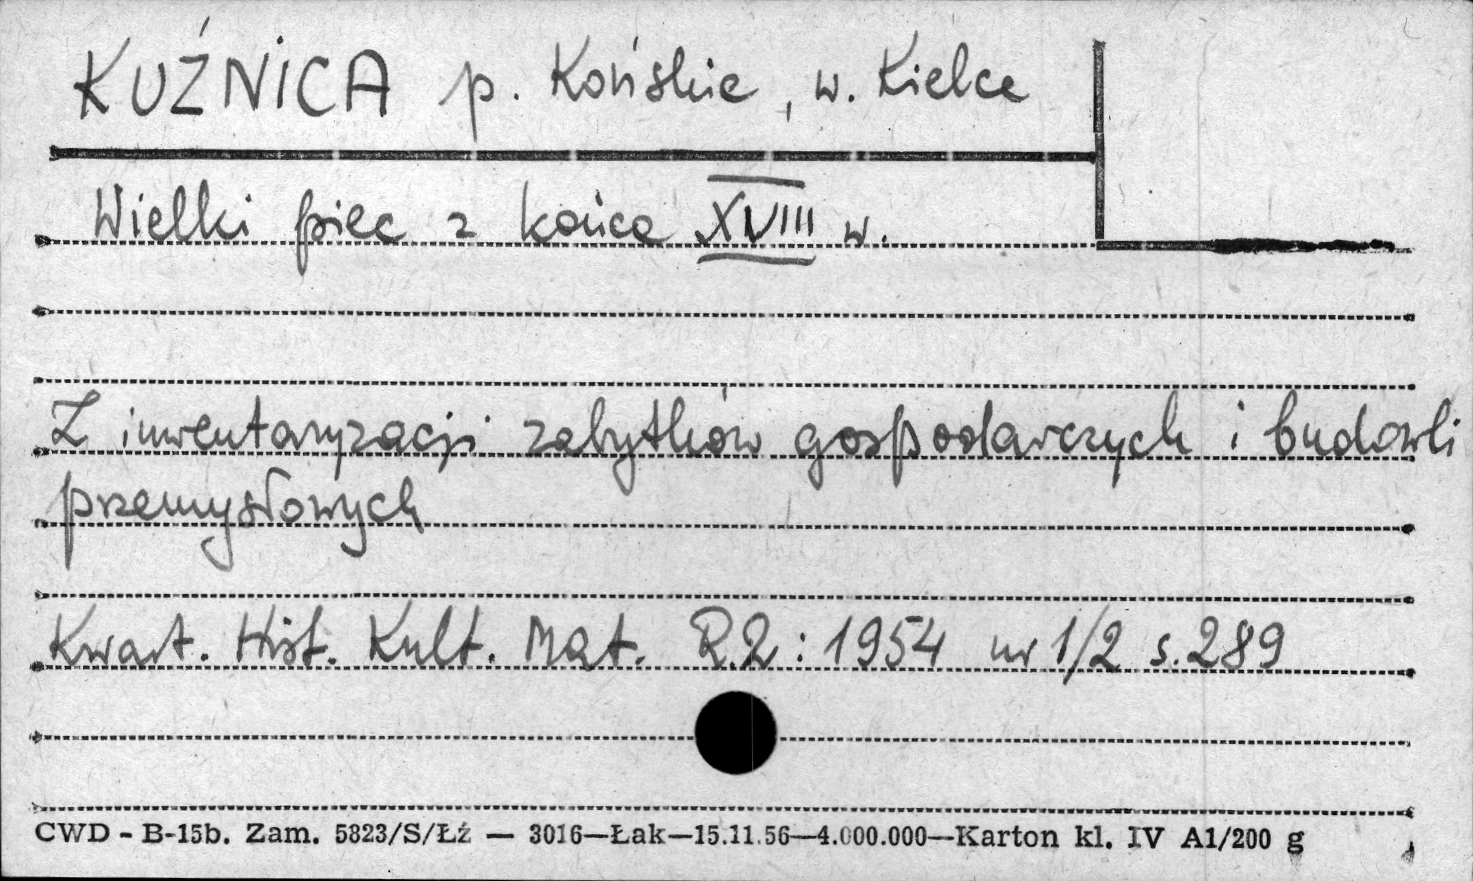 KUŹNICA p. Końskie, w. Kielce
Wielki piec z końca XVIII w.
Z inwentaryzacji zabytków gospodarczych i budowli
przemysłowych
Kwart. Hist. Kult. Mat. R.2: 1954 nr 1/2 s. 289
CWD - B-15b. Zam. 5823/S/Łź — 3016—Łak—15.11.56—4.000.000—Karton kl. IV A1/200 g